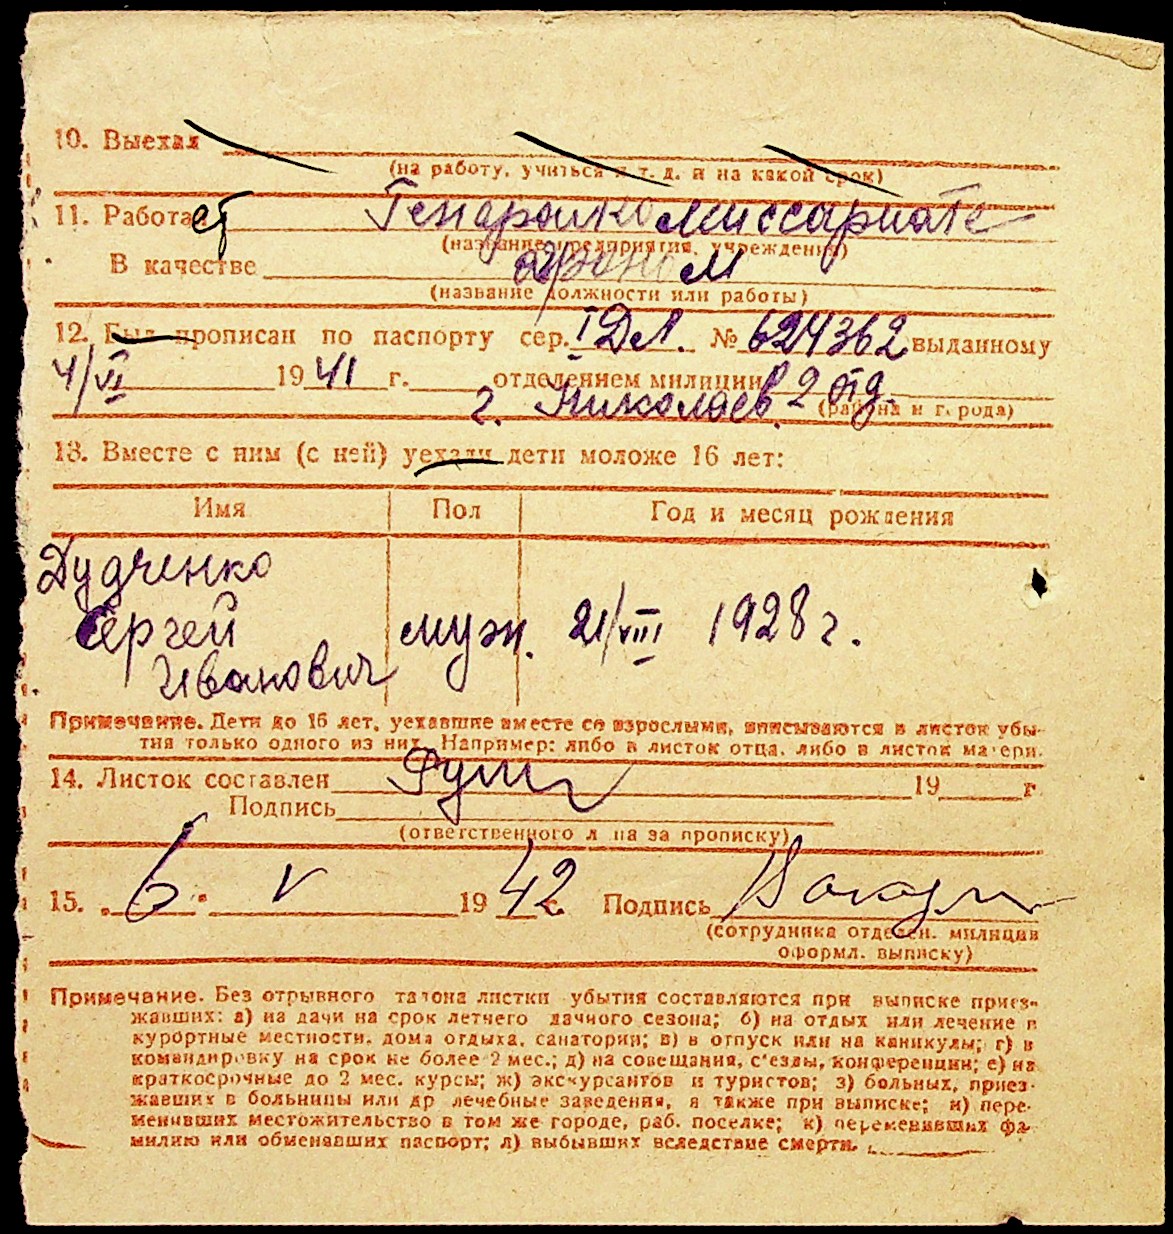 10. Выехал
(на работу, учиться и т. д. и на какой срок)
11. Работает Генералкомиссариате
(название предприятия, учреждения)
В качестве агроном
(название должности или работы)
12. Был прописан по паспорту сер. I ДЛ. № 624362 выданному
4/VI 1941 г. отделением милиции 2 отд.
г. Николаев. (района и города)
13. Вместе с ним (с ней) уехали дети моложе 16 лет:
Имя Пол Год и месяц рождения
Дудченко
Сергей муж. 21/VIII 1928 г.
Иванович
Примечание. Дети до 16 лет, уехавшие вместе со взрослыми, вписываются в листок убы-
тия только одного из них. Например: либо в листок отца, либо в листок матери.
14. Листок составлен 19 г
Подпись
(ответственного лица за прописку)
15. 6. V 1942 г. Подпись
(сотрудника отделен. милиции
оформл. выписку)
Примечание. Без отрывного талона листки убытия составляются при выписке приез-
жавших: а) на дачи на срок летнего дачного сезона; б) на отдых или лечение в
курортные местности, дома отдыха, санатории; в) в отпуск или на каникулы; г) в
командировку на срок не более 2 мес.; д) на совещания, с'езды, конференции; е) на
краткосрочные до 2 мес. курсы; ж) экскурсантов и туристов; з) больных, приез-
жавших в больницы или др лечебные заведения, а также при выписке; и) пере-
менивших местожительство в том же городе, раб. поселке; к) переменивших фа-
милию или обменявших паспорт; л) выбывших вследствие смерти.